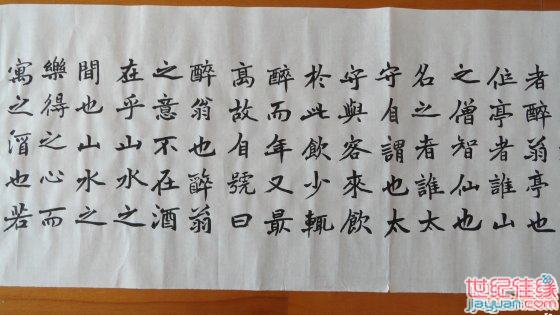 者醉翁亭也
作亭者誰山
之僧智仙也
名之者誰太
守自謂也太
守與客來飲
於此飲少輒
醉而年又最
高故自號曰
醉翁也醉翁
之意不在酒
在乎山水之
間也山水之
樂得之心而
寓之酒也若
世纪佳缘
jiayuan.com